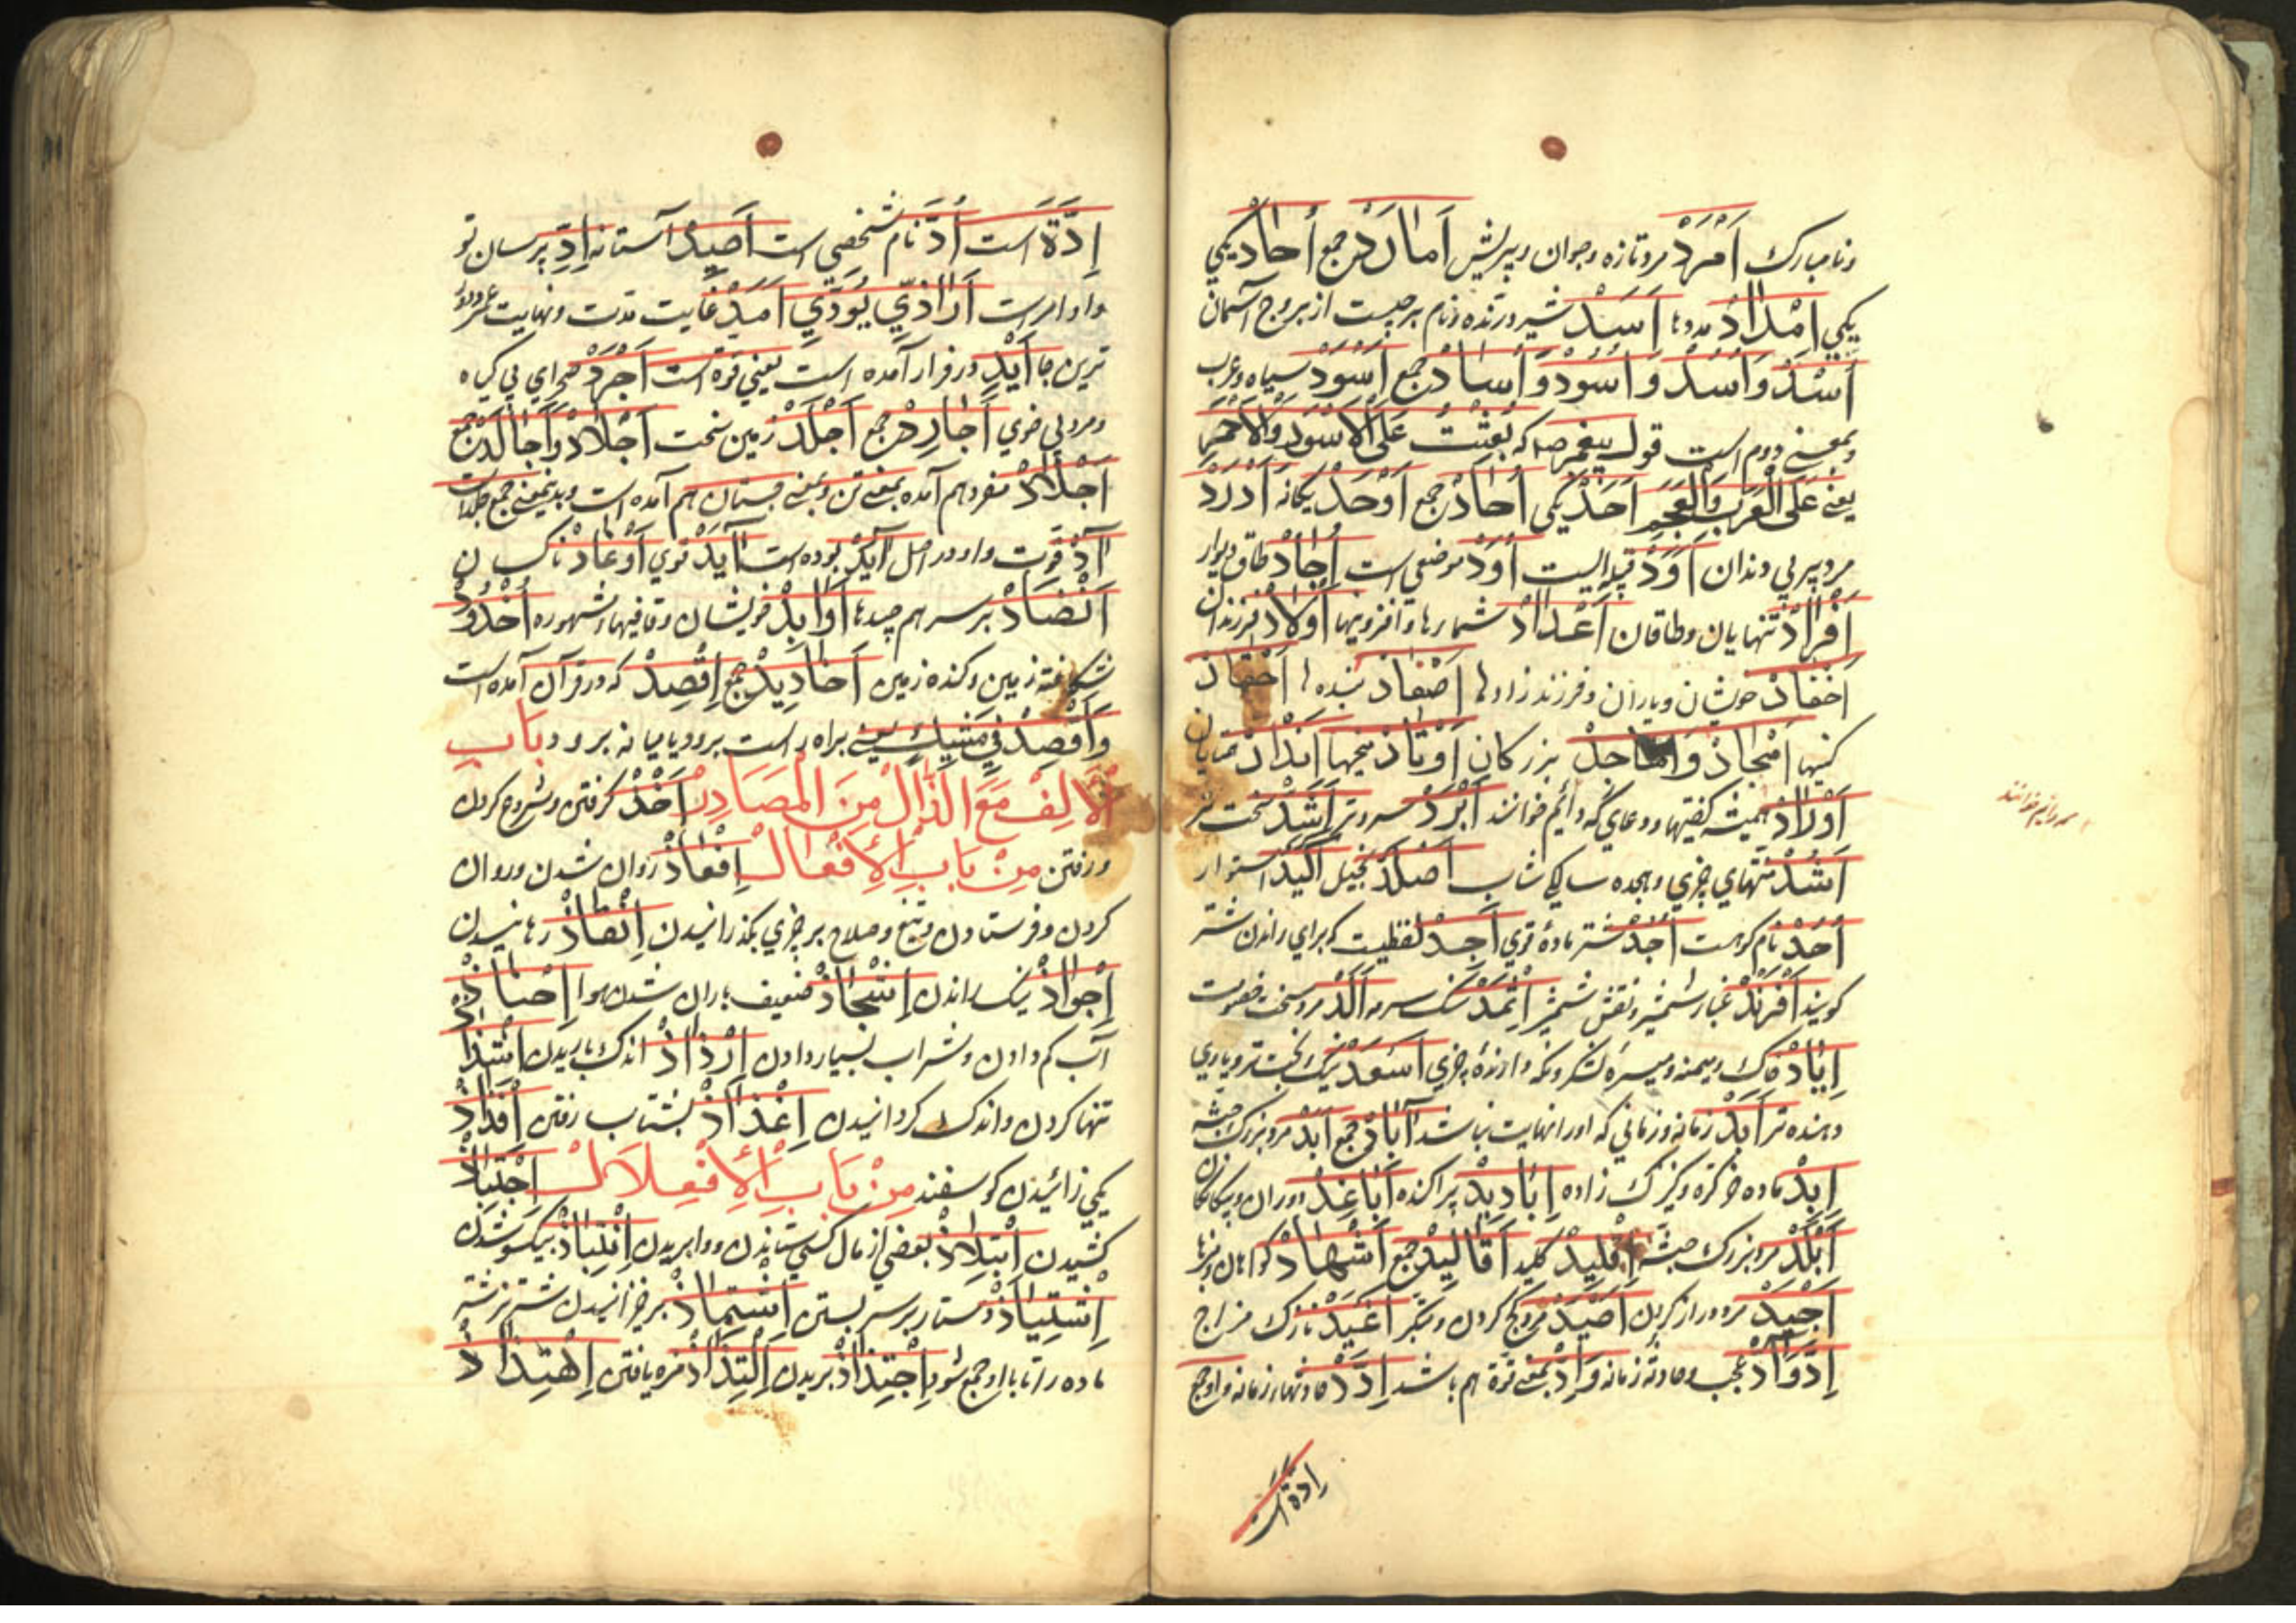 ونامبارک اَمْرَدْ مرد تازه و جوان و بی ریش اَمارِدْ جمع اُحادْ یکی
یکی اِمْدادْ مددها اَسَدْ شیر درنده و نام برجیست از بروج آسمان
اُسْدْ وَاُسُدْ وَاُسُودْ وَآسادْ جمع اَسْوَدْ سیاه و عرب
وبمعنی دوم است قول پیغمبر صه که بُعِثْتُ عَلَی الْاَسْوَدِ وَالْاَحْمَرِ
یعنی عَلَی الْعَرَبِ وَالْعَجَمِ اَحَدْ یکی اُحادْ جمع اَوْحَدْ یکانه اَدْرَدْ
مرد پیر بی دندان اَوَدْ قبیله ایست اُوَدْ موضعی است اِجادْ طاق دیوار
اَفْرادْ تنهایان وطاقان اَعْدادْ شمارها و افزونیها اَولادْ فرزندان
اَحْفادْ خویشان و یاران و فرزندزادها اَصْفادْ بندها اَحْقادْ
کینها اَمْجادْ وَاَماجِدْ بزرکان اَوْتادْ میخها اَنْدادْ همتایان
اَوْرادْ همیشه کفتیها و دعای که دائم خوانند اَبْرَدْ سردتر اَشَدْ سخت تر
اَشُدْ منتهای چیزی وهجده سالکی شاب اَصْلَدْ بخیل اَکیدْ استوار
اُحُدْ نام کوهست اُجُدْ شتر ماده قوی اِجِدْ لفظیست که برای راندن شتر
کویند اَفْرَنْدْ غبار شمشیر و نقش شمشیر اِثْمِدْ سنک سرمه اَلَدْ مرد سخت خصومت
اِیادْ خاک ومیمنه ومیسره لشکر و نکه دارنده چیزی اَسْعَدْ نیک بخت تر و یاری
دهنده تر اَبَدْ زمانه و زمانی که او را نهایت نباشد آبادْ جمع اَبَدْ مرد بزرک جثه
اِبِدْ ماده خر کره و کنیزک زاده اِبادیدْ پراکنده اَباعِدْ دوران و بیکانکان
اَبْلَدْ مرد بزرک جثه اِقْلیدْ کلید اَقالیدْ جمع اَشْهادْ کواهان
اَجْیَدْ مرد دراز کردن اَصْیَدْ مرد کج کردن و متکبر اَغْیَدْ نازک مزاج
اِدْ وَآدْ عجب و حادثه زمانه وَاِدْ بمعنی قوة هم باشد اِدَدْ حادثهاء زمانه واو جمع
اِدَّة است
اِدَّةْ است اُدَدْ نام شخصی است اَصیدْ آستانه اِدِّ برسان تو
واو امر است اَزْ اَدّی یُؤَدّی اَمَدْ غایت مدت ونهایت عمر
ترین جا اَیْدْ در قرآن آمده است یعنی قوة است اَجْرَدْ صحرای بی کیاه
ومرد بی موی اَجارِدْ جمع اَجْلَدْ زمین سخت اَجْلادْ وَاَجالِدْ جمع
اَجْلادْ مفرد هم آمده بمعنی تن وبمعنی جسمان هم آمده است وبدینمعنی جمع جلد است
آدْ قوت واو در اصل اَیَدْ بوده است اَیِّدْ قوی اَوْغادْ ناکسان
اَنْضادْ برسر هم چیدها اَوابِدْ خویشان وقافیهاء مشهوره اُخْدُودْ
شکافته زمین وکنده زمین اَخادیدْ جمع اِقْصِدْ که در قرآن آمده است
وَاقْصِدْ فِي مَشْيِكَ یعنی براه راست برو و یا میانه برو و بَابُ
اَلْاَلِفْ مَعَ الذّالْ مِنَ الْمَصَادِرْ اَخْذْ کرفتن و شروع کردن
ورفتن مِنْ بَابِ الْاِفْعالْ اِنْفاذْ روان شدن وروان
کردن وفرستادن وتیغ وصلاح بر چیزی بکذرانیدن اِنْقاذْ رهانیدن
اِجْواذْ نیک راندن اِشْجاذْ ضعیف باران شدن هوا
آب کم دادن وشراب بسیار دادن اِرْذاذْ اندک باریدن
تنها کردن واندک کردانیدن اِغْذاذْ بشتاب رفتن اِفْذاذْ
یکی زائیدن کوسفند مِنْ بَابِ الْاِفْتِعَالْ اِجْتِباذْ
کشیدن بعضی از مال کسی ستاندن ووابریدن اِنْتِباذْ بیکسو شدن
دستار بر سر بستن برخیزانیدن شتر نر شتر
ماده را تا با او جمع شود اِجْتِذاذْ بریدن اِلْتِذاذْ مزه یافتن اِهْتِذاذْ